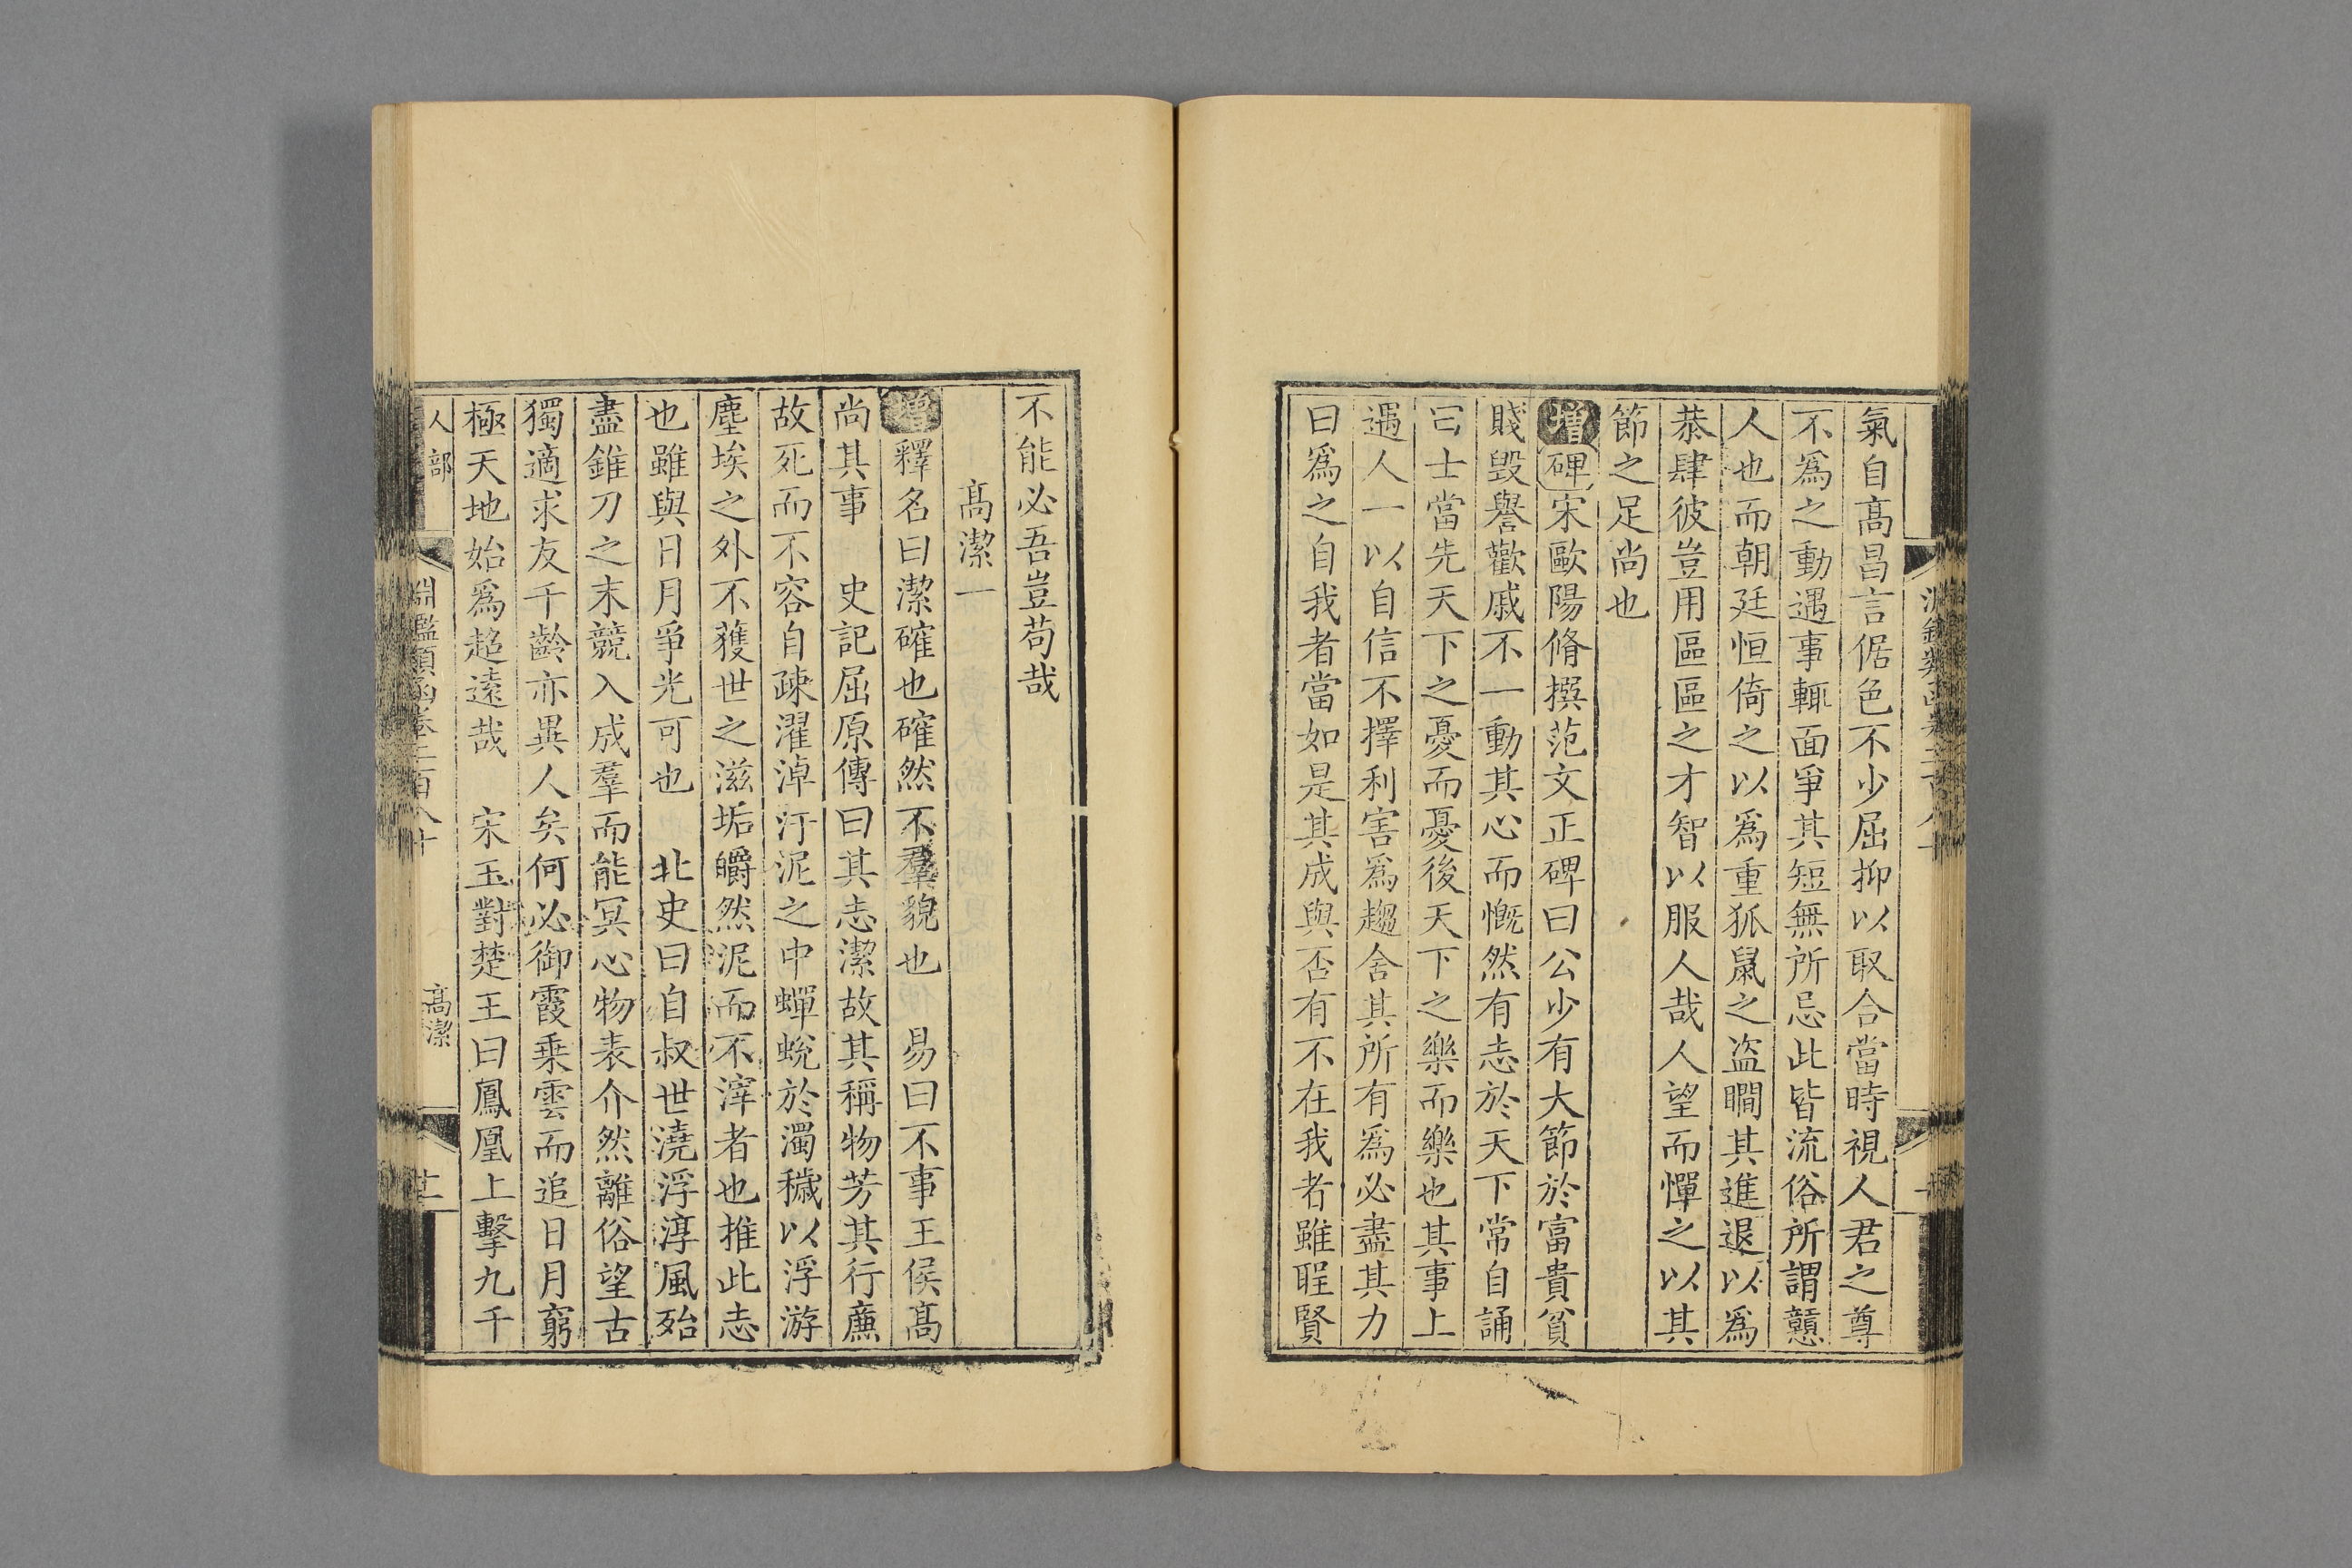 氣自髙昌言倨色不少屈抑以取合當時視人君之尊
不爲之動遇事輒面爭其短無所忌此皆流俗所謂戇
人也而朝廷恒倚之以爲重狐鼠之盗瞯其進退以爲
恭肆彼豈用區區之才智以服人哉人望而憚之以其
節之足尚也
増碑宋歐陽脩撰范文正碑曰公少有大節於富貴貧
賤毀譽歡戚不一動其心而慨然有志於天下常自誦
曰士當先天下之憂而憂後天下之樂而樂也其事上
遇人一以自信不擇利害爲趨舍其所有爲必盡其力
曰爲之自我者當如是其成與否有不在我者雖聖賢
不能必吾豈苟哉
髙潔一
增釋名曰潔確也確然不羣貌也 易曰不事王侯髙
尚其事 史記屈原傳曰其志潔故其稱物芳其行亷
故死而不容自疎濯淖汙泥之中蟬蛻於濁穢以浮游
塵埃之外不獲世之滋垢皭然泥而不滓者也推此志
也雖與日月爭光可也 北史曰自叔世澆浮淳風殆
盡錐刀之末競入成羣而能冥心物表介然離俗望古
獨適求友千齡亦異人矣何必御霞乗雲而追日月窮
極天地始爲超遠哉 宋玉對楚王曰鳳凰上擊九千
人部 淵鑑類函卷二百八十 髙潔